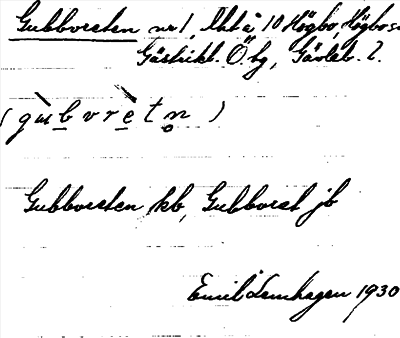 Gubborsten nr 1, Mtå 10 Högbo, Högbo sn
Gästrikl. Ö. hg, Gävleb. l.
(gubvretn)
Gubborsten kb, Gubborst jb
Emil Lemhagen 1930